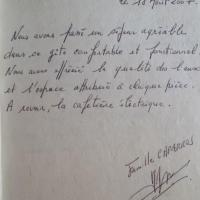 le 18 Août 2007.
Nous avons passé un séjour agréable
dans ce gîte confortable et fonctionnel.
Nous avons apprécié la qualité des lieux
et l'espace attribué à chaque pièce.
A revoir, la cafetière électrique.
Famille